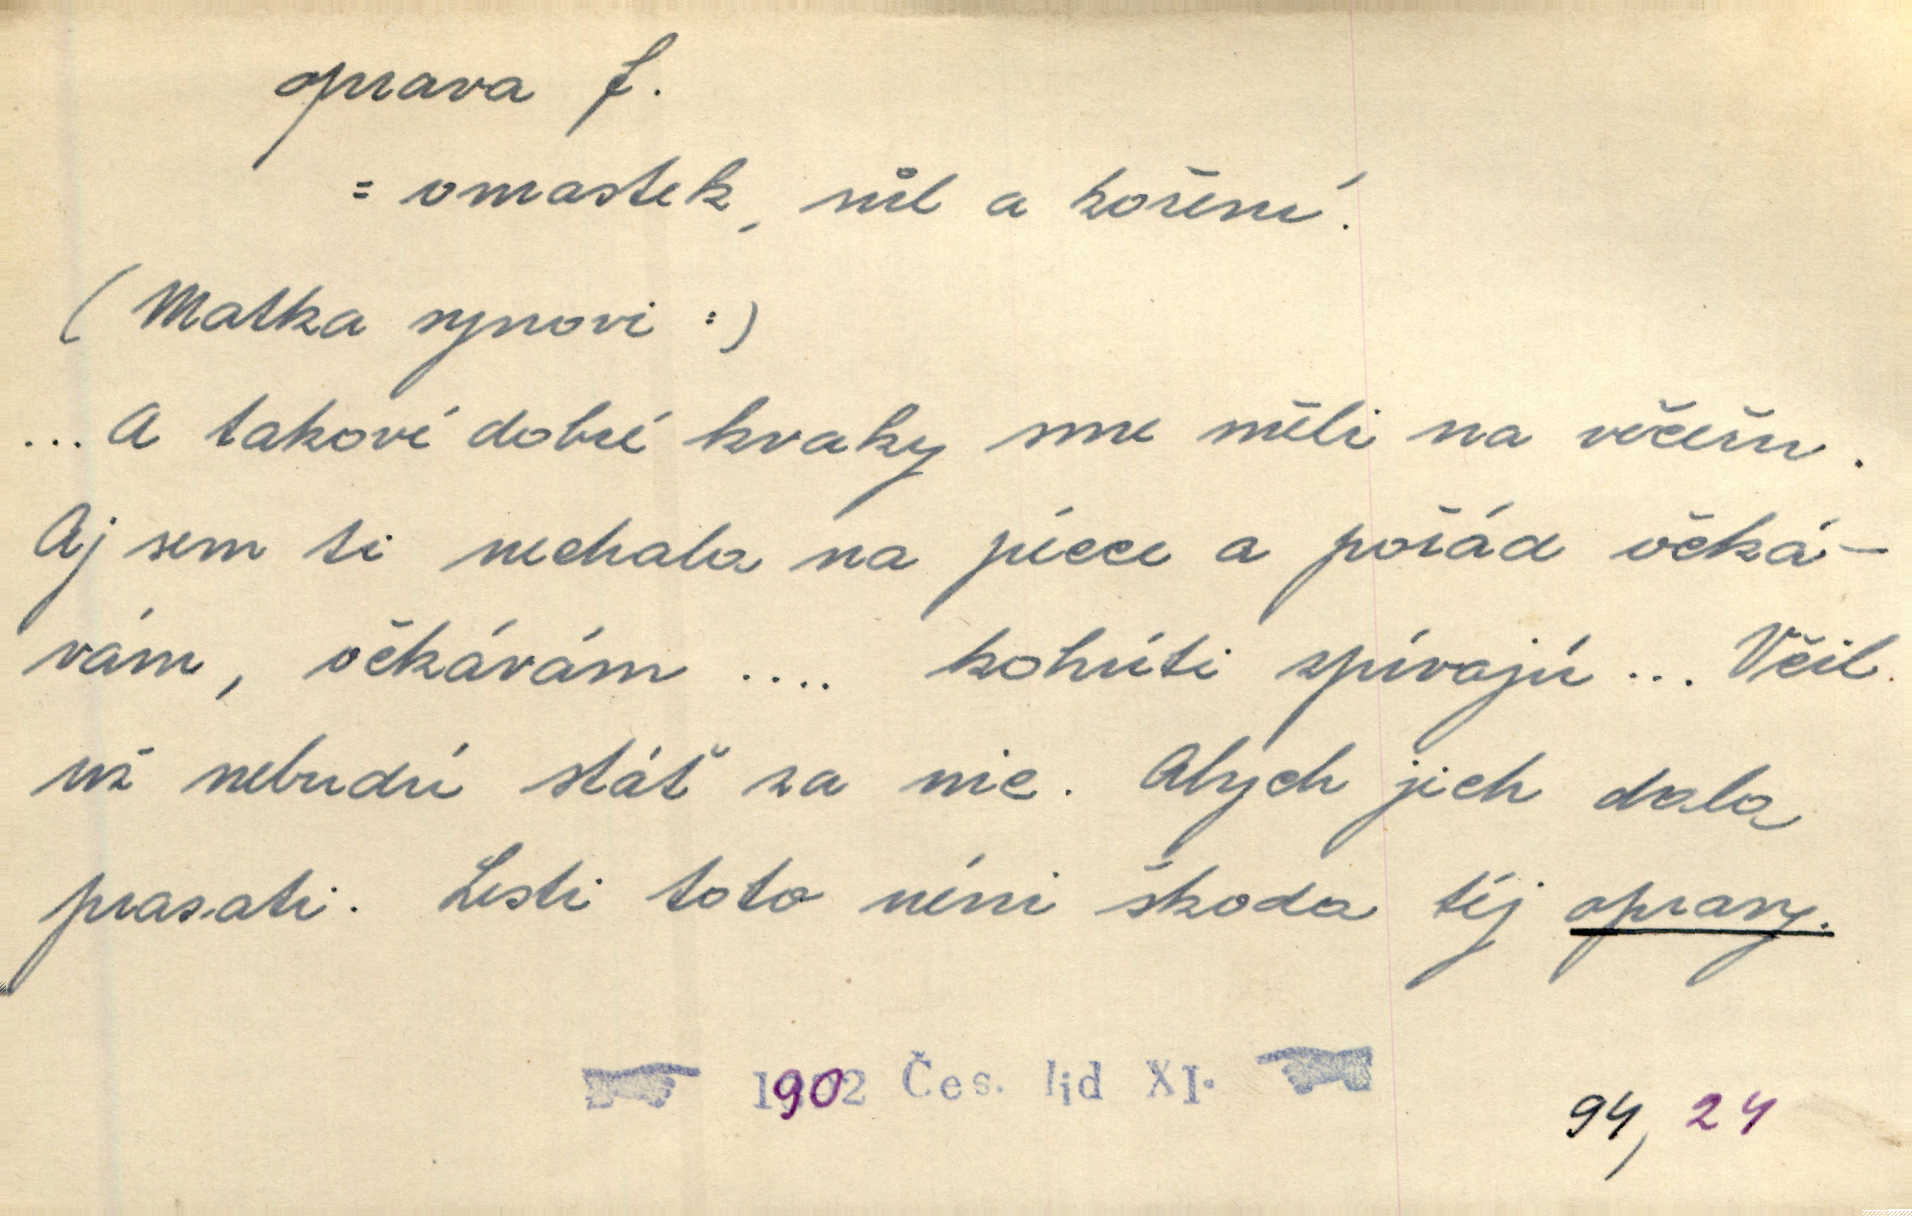 oprava f.
= omastek, sůl a koření.
(Matka synovi :)
... A takové dobré kvaky sme měli na večeřu.
Aj sem ti nechala na piecce a pořád očká-
vám, očkávám .... kohúti zpívajú ... Včil
už nebudú stáť za nic. Abych jich dala
prasati. Lesti toto néni škoda téj opravy.
1902 Čes. lid XI.
94, 24